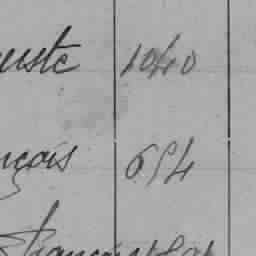 uste 1040
nçois 654